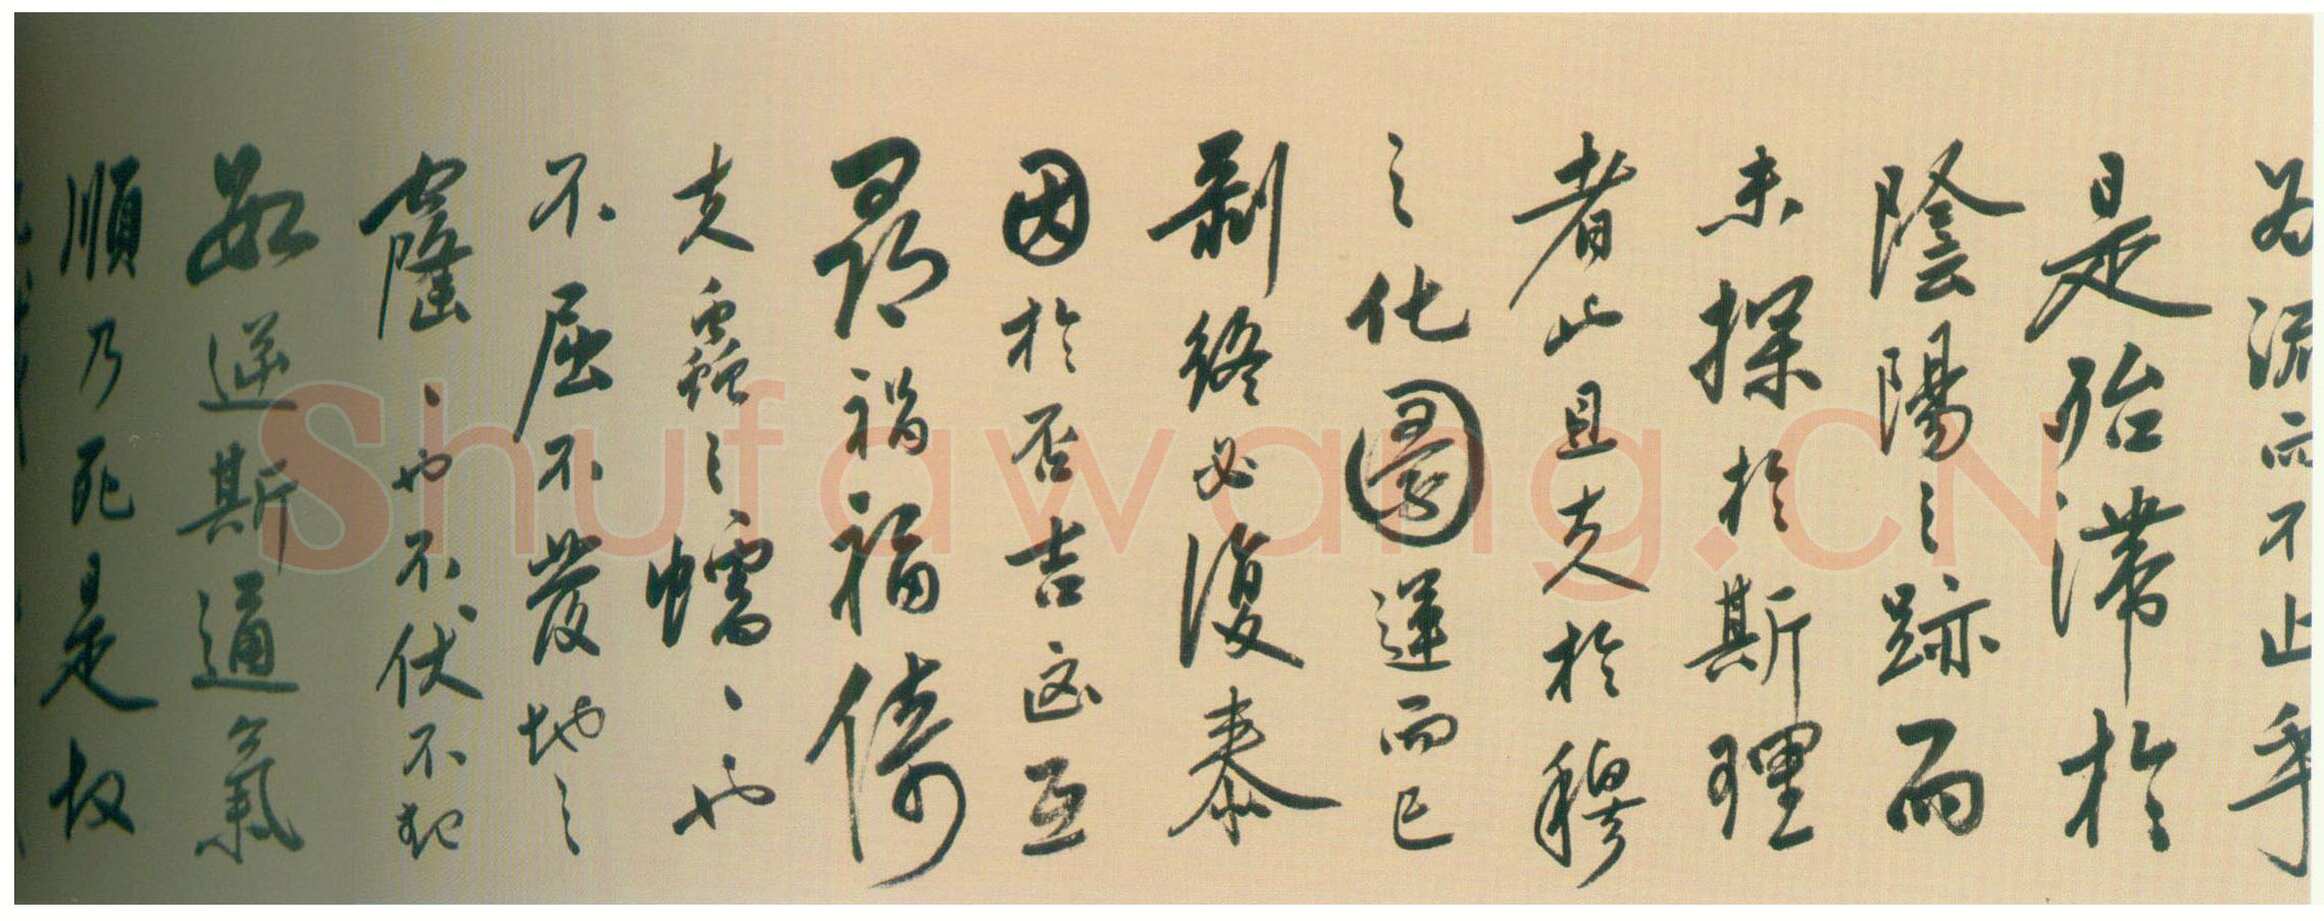 為流而不止乎
是殆滯於
陰陽之跡而
未探於斯理
者此且夫於穆
之化圜運而已
剥終必復泰
因於否吉凶互
尋禍福倚
夫之蠕、也
不屈不發地之
窿、也不伏不犯
逆斯通氣
順乃死是故
Shufawang.CN